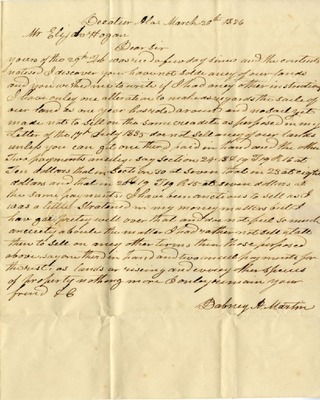 Decatur Ala March 20th 1836
Mr. Elijah Hogan
Dear Sir
yours of the 29th Feb was recd a few day sinces and the contents
noticed I discover you have not sold any of our lands
and you wished me to write if I had any other instructions
I have only one alteration to make as regards the sale of
our land
made not to sell on the same credit as proposed in my
letter of the 17th July 1835 do not sell any of our lands
unless you can get one third paid in hand and the other
Two payments anuly say Section 29 & 32 T 19 R 16 at
Ten dollars that in Section 30 at seven that in 25 at eight
dollars and that in 24 T 19 R 15 at seven dollars at
the same payments. I have been anctious to sell and
was a little Strated in my money matters and I
have got pretty well over that and have not feel so much
anxiety about the matter I had rather not sell at all
then to sell on any other terms then those proposed
above say one third in hand and two anuel payments for
the rest as lands ar useing and every other Species
of property nothing more I only remain your
friend &C
Dabney A. Martin